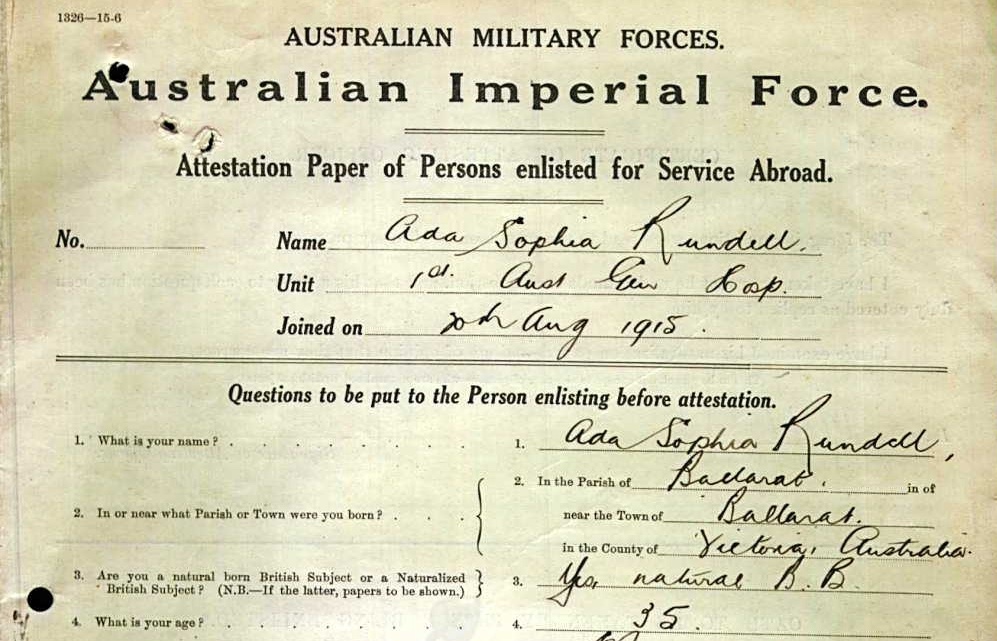 1326—15-6
AUSTRALIAN MILITARY FORCES.
Australian Imperial Force.
Attestation Paper of Persons enlisted for Service Abroad.
No. Name Ada Sophia Rundell.
Unit 1st. Aust Gen Hosp.
Joined on Aug 1915.
Questions to be put to the Person enlisting before attestation.
1. What is your name? . . . . . . . 1. Ada Sophia Rundell,
2. In the Parish of Ballarat. in of
2. In or near what Parish or Town were you born? . . . near the Town of Ballarat.
in the County of Victoria, Australia.
3. Are you a natural born British Subject or a Naturalized British Subject? (N.B.—If the latter, papers to be shown.) 3. Yes, natural B. B.
4. What is your age? . . . . . . . 4. 35.